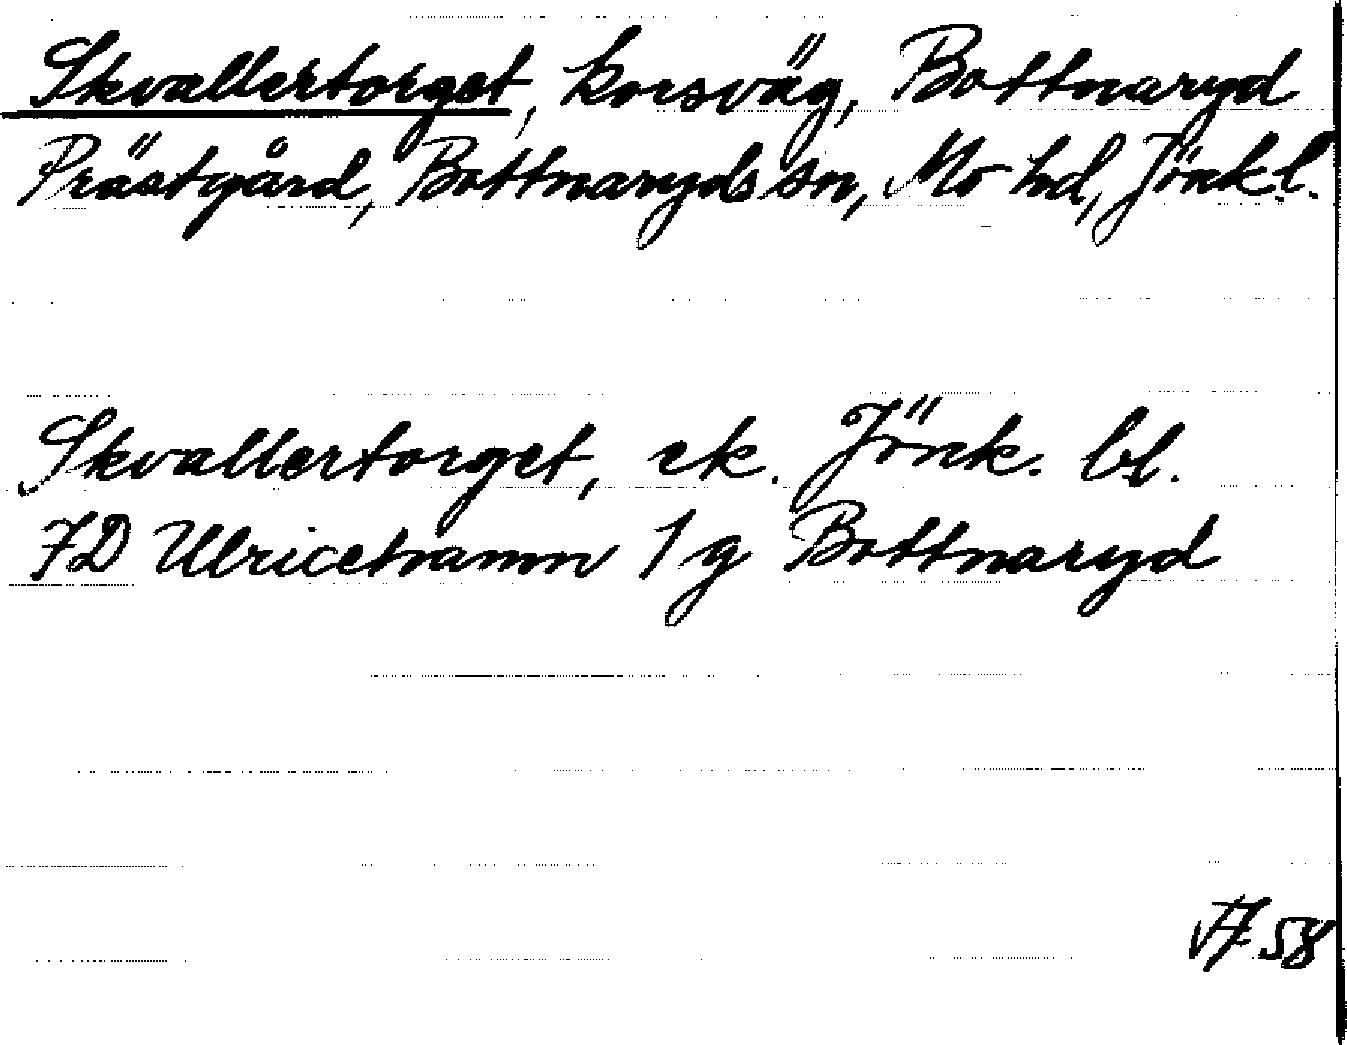 Skvallertorget, korsväg, Bottnaryd
Prästgård, Bottnaryds sn, Mo hd, Jönk.l.
Skvallertorget, ek. Jönk. bl.
7D Ulricehamn 1g Bottnaryd
58